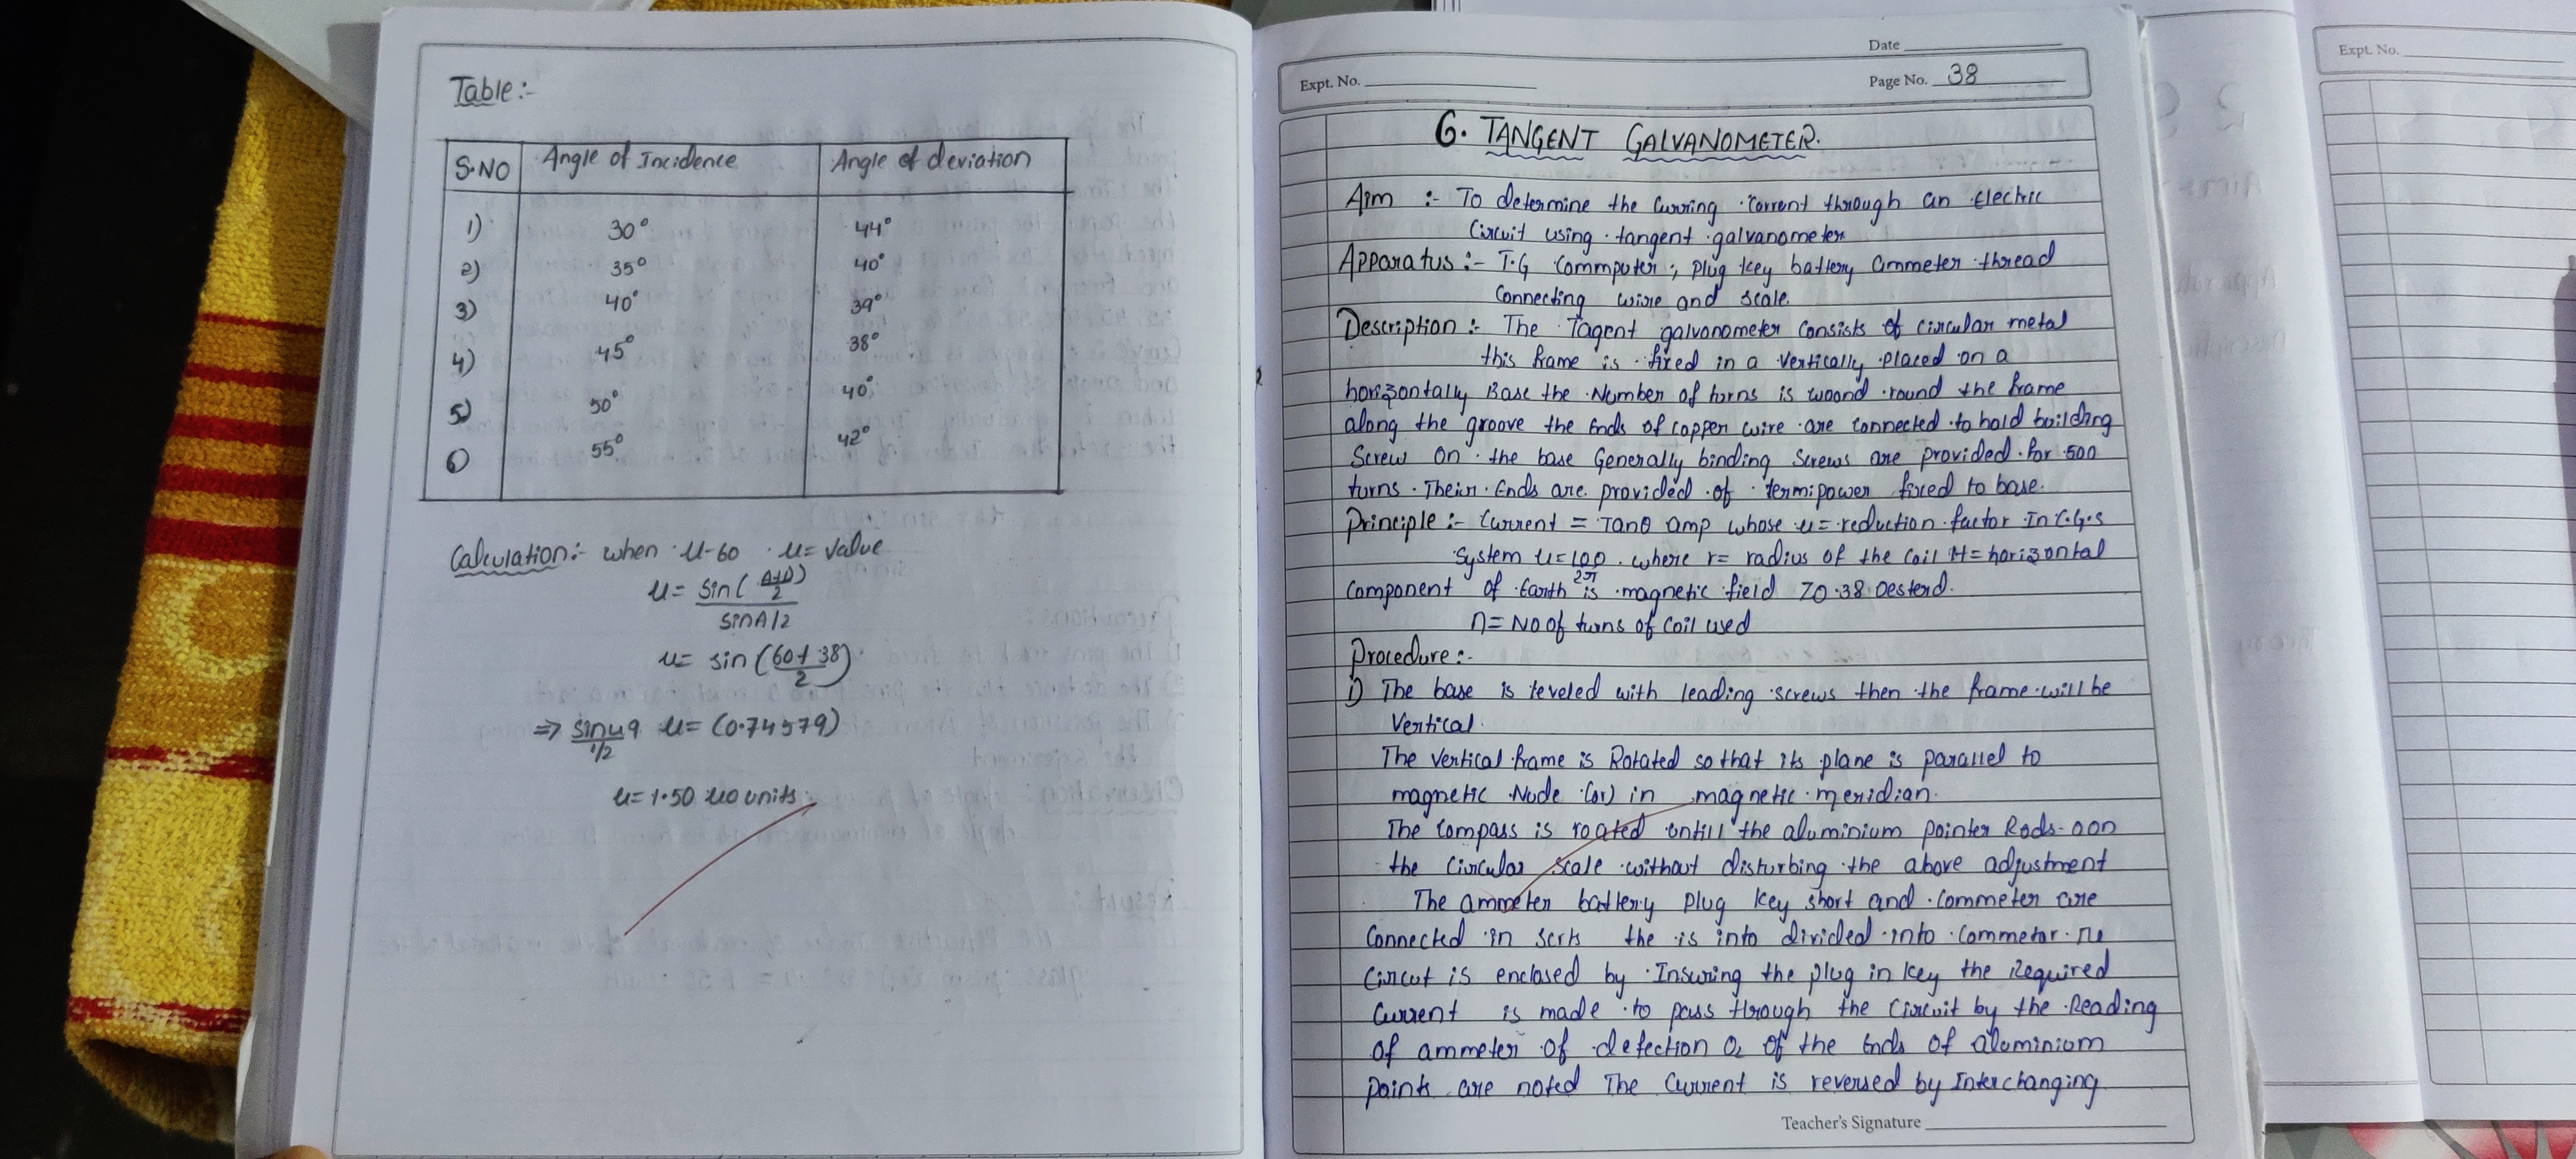 Table:-
S.NO Angle of Incidence Angle of deviation
1) 30° 44°
2) 35° 40°
3) 40° 39°
4) 45° 38°
5) 50° 40°
6) 55° 42°
Calculation:- when μ-60 μ= value
μ= sin(A+D/2)
sinA/2
μ= sin(60+38/2)
⇒ sin49/1/2 μ= (0.74579)
μ=1.50 no units
Date
Expt. No.
Page No. 38
6. TANGENT GALVANOMETER.
Aim :- To determine the Current through an Electric
Circuit using tangent galvanometer
Apparatus :- T.G Commputer, plug key battery ammeter thread
Connecting wire and scale
Description :- The Tagent galvonometer Consists of circular metal
this frame is fixed in a vertically placed on a
horizontally Base the Number of turns is woond round the frame
along the groove the Ends of copper wire are connected to hold building
Screw on the base Generally binding Screws are provided for 500
turns. Their Ends are provided of termipower fixed to base.
Principle :- Current = Tanθ amp whose u= reduction factor In C.G.S
System u=10 where r= radius of the Coil H= horizontal
2π
Component of Earth is magnetic field 20.38 Oesterd.
n= No of turns of coil used
Procedure :-
1) The base is leveled with leading screws then the frame will be
Vertical.
The vertical frame is Rotated so that its plane is parallel to
magnetic Node (or) in magnetic meridian.
The Compass is roated untill the aluminium pointer Rods oon
the Circular Scale without disturbing the above adjustment
The ammeter battery plug key short and Commeter are
Connected in the is into divided into Commetor
Circut is enclosed by Insuring the plug in key the Required
Current is made to pass through the Circuit by the Reading
of ammeter of defection of the Ends of aluminium
points are noted The Current is reversed by Interchanging
Teacher's Signature
Expt. No.